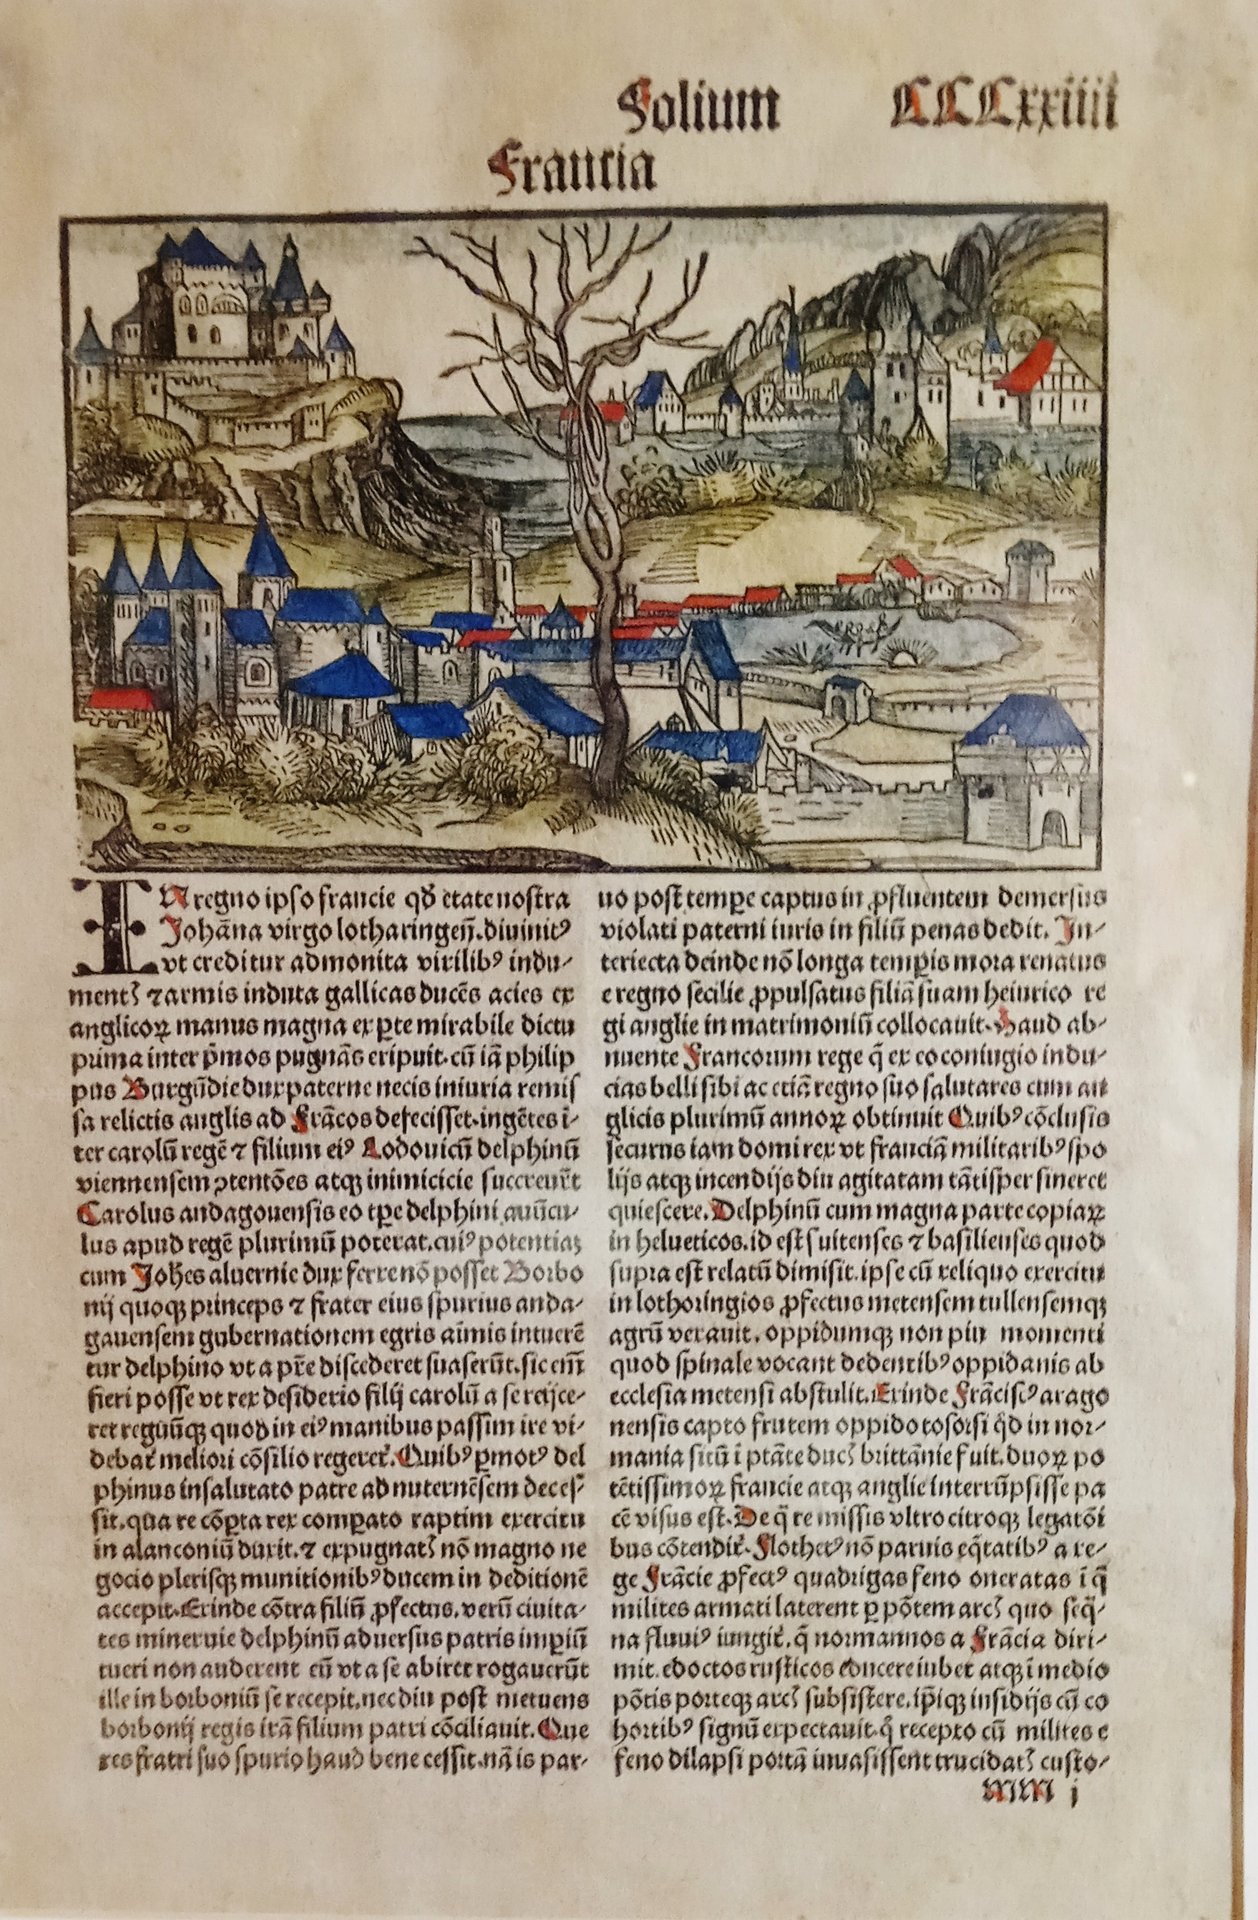 Folium CCCxxiiii
Francia
IN regno ipso francie qđ etate nostra
Johãna virgo lotharingeñ. diuinitꝰ
vt creditur admonita virilibꝰ indu-
mentꝭ ⁊ armis induta gallicas ducẽs acies ex
anglicoꝝ manus magna ex ꝑte mirabile dictu
prima inter p̃mos pugnãs eripuit. cũ iã philip
pus Burgũdie dux paterne necis iniuria remis
sa relictis anglis ad Frãcos defecisset. ingẽtes ĩ-
ter carolũ regẽ ⁊ filium eiꝰ Lodouicũ delphinũ
viennensem ↄtentões atqꝫ inimicicie succreuer̃t
Carolus andagouensis eo tꝑe delphini auũcu-
lus apud regẽ plurimũ poterat. cuiꝰ potentiaꝫ
cum Joħes aluernie dux ferre nõ posset Borbo
nij quoqꝫ princeps ⁊ frater eius spurius anda-
gauensem gubernationem egris aĩmis intuerẽ
tur delphino vt a pr̃e discederet suaserũt. sic em̃
fieri posse vt rex desiderio filij carolũ a se reijce-
ret regnũqꝫ quod in eiꝰ manibus passim ire vi-
debat᷑ meliori cõsilio regeret᷑. Quibꝰ ꝑmotꝰ del
phinus insalutato patre ad niuernẽsem deces-
sit. qua re cõꝑta rex comꝑato raptim exercitu
in alanconiũ duxit. ⁊ expugnatꝭ nõ magno ne
gocio plerisqꝫ munitionibꝰ ducem in deditionẽ
accepit. Exinde cõtra filiũ ꝓfectus. verũ ciuita-
tes mineruie delphinũ aduersus patris imꝑiũ
tueri non auderent eũ vt a se abiret rogauerũt
ille in borboniũ se recepit. nec diu post metuens
borbonij regis irã filium patri cõciliauit. Que
res fratri suo spurio haud bene cessit. nã is par-
uo post tempe captus in ꝓfluentem demersus
violati paterni iuris in filiũ penas dedit. In-
teriecta deinde nõ longa temꝑis mora renatus
e regno secilie ꝓpulsatus filiã suam heinrico re
gi anglie in matrimoniũ collocauit. Haud ab-
nuente Francorum rege q̃ ex eo coniugio indu-
cias belli sibi ac etiã regno suo salutares cum an
glicis plurimũ annoꝝ obtinuit Quibꝰ cõclusis
securus iam domi rex vt franciã militaribꝰ spo
lijs atqꝫ incendijs diu agitatam tãtisper sineret
quiescere. Delphinũ cum magna parte copiaꝝ
in helueticos. id est suitenses ⁊ basilienses quod
supra est relatũ dimisit. ipse cũ reliquo exercitu
in lothoringios ꝓfectus metensem tullensemqꝫ
agrũ vexauit. oppidumqꝫ non piu momenti
quod spinale vocant dedentibꝰ oppidanis ab
ecclesia metensi abstulit. Exinde Frãciscꝰ arago
nensis capto frutem oppido tosorsi q̃d in nor-
mania sitũ ĩ ptãte ducꝭ brittãnie fuit. duoꝝ po
tẽtissimoꝝ francie atqꝫ anglie interrũpsisse pa
cẽ visus est. De q̃ re missis vltro citroqꝫ legatõi
bus cõtendit᷑. Flothetꝰ nõ paruis eq̃tatibꝰ a re-
ge Frãcie ꝓfectꝰ quadrigas feno oneratas ĩ q̃
milites armati laterent ꝑ põtem arcꝭ quo seq̃-
na fluuiꝰ iungit᷑. q̃ normannos a Frãcia diri-
mit. edoctos rusticos educere iubet atqꝫ ĩ medio
põtis porteqꝫ arcꝭ subsistere. ip̃iqꝫ insidijs cũ co
hortibꝰ signũ expectauit. q̃ recepto cũ milites e
feno dilapsi portã inuasissent trucidatꝭ custo-
MM j